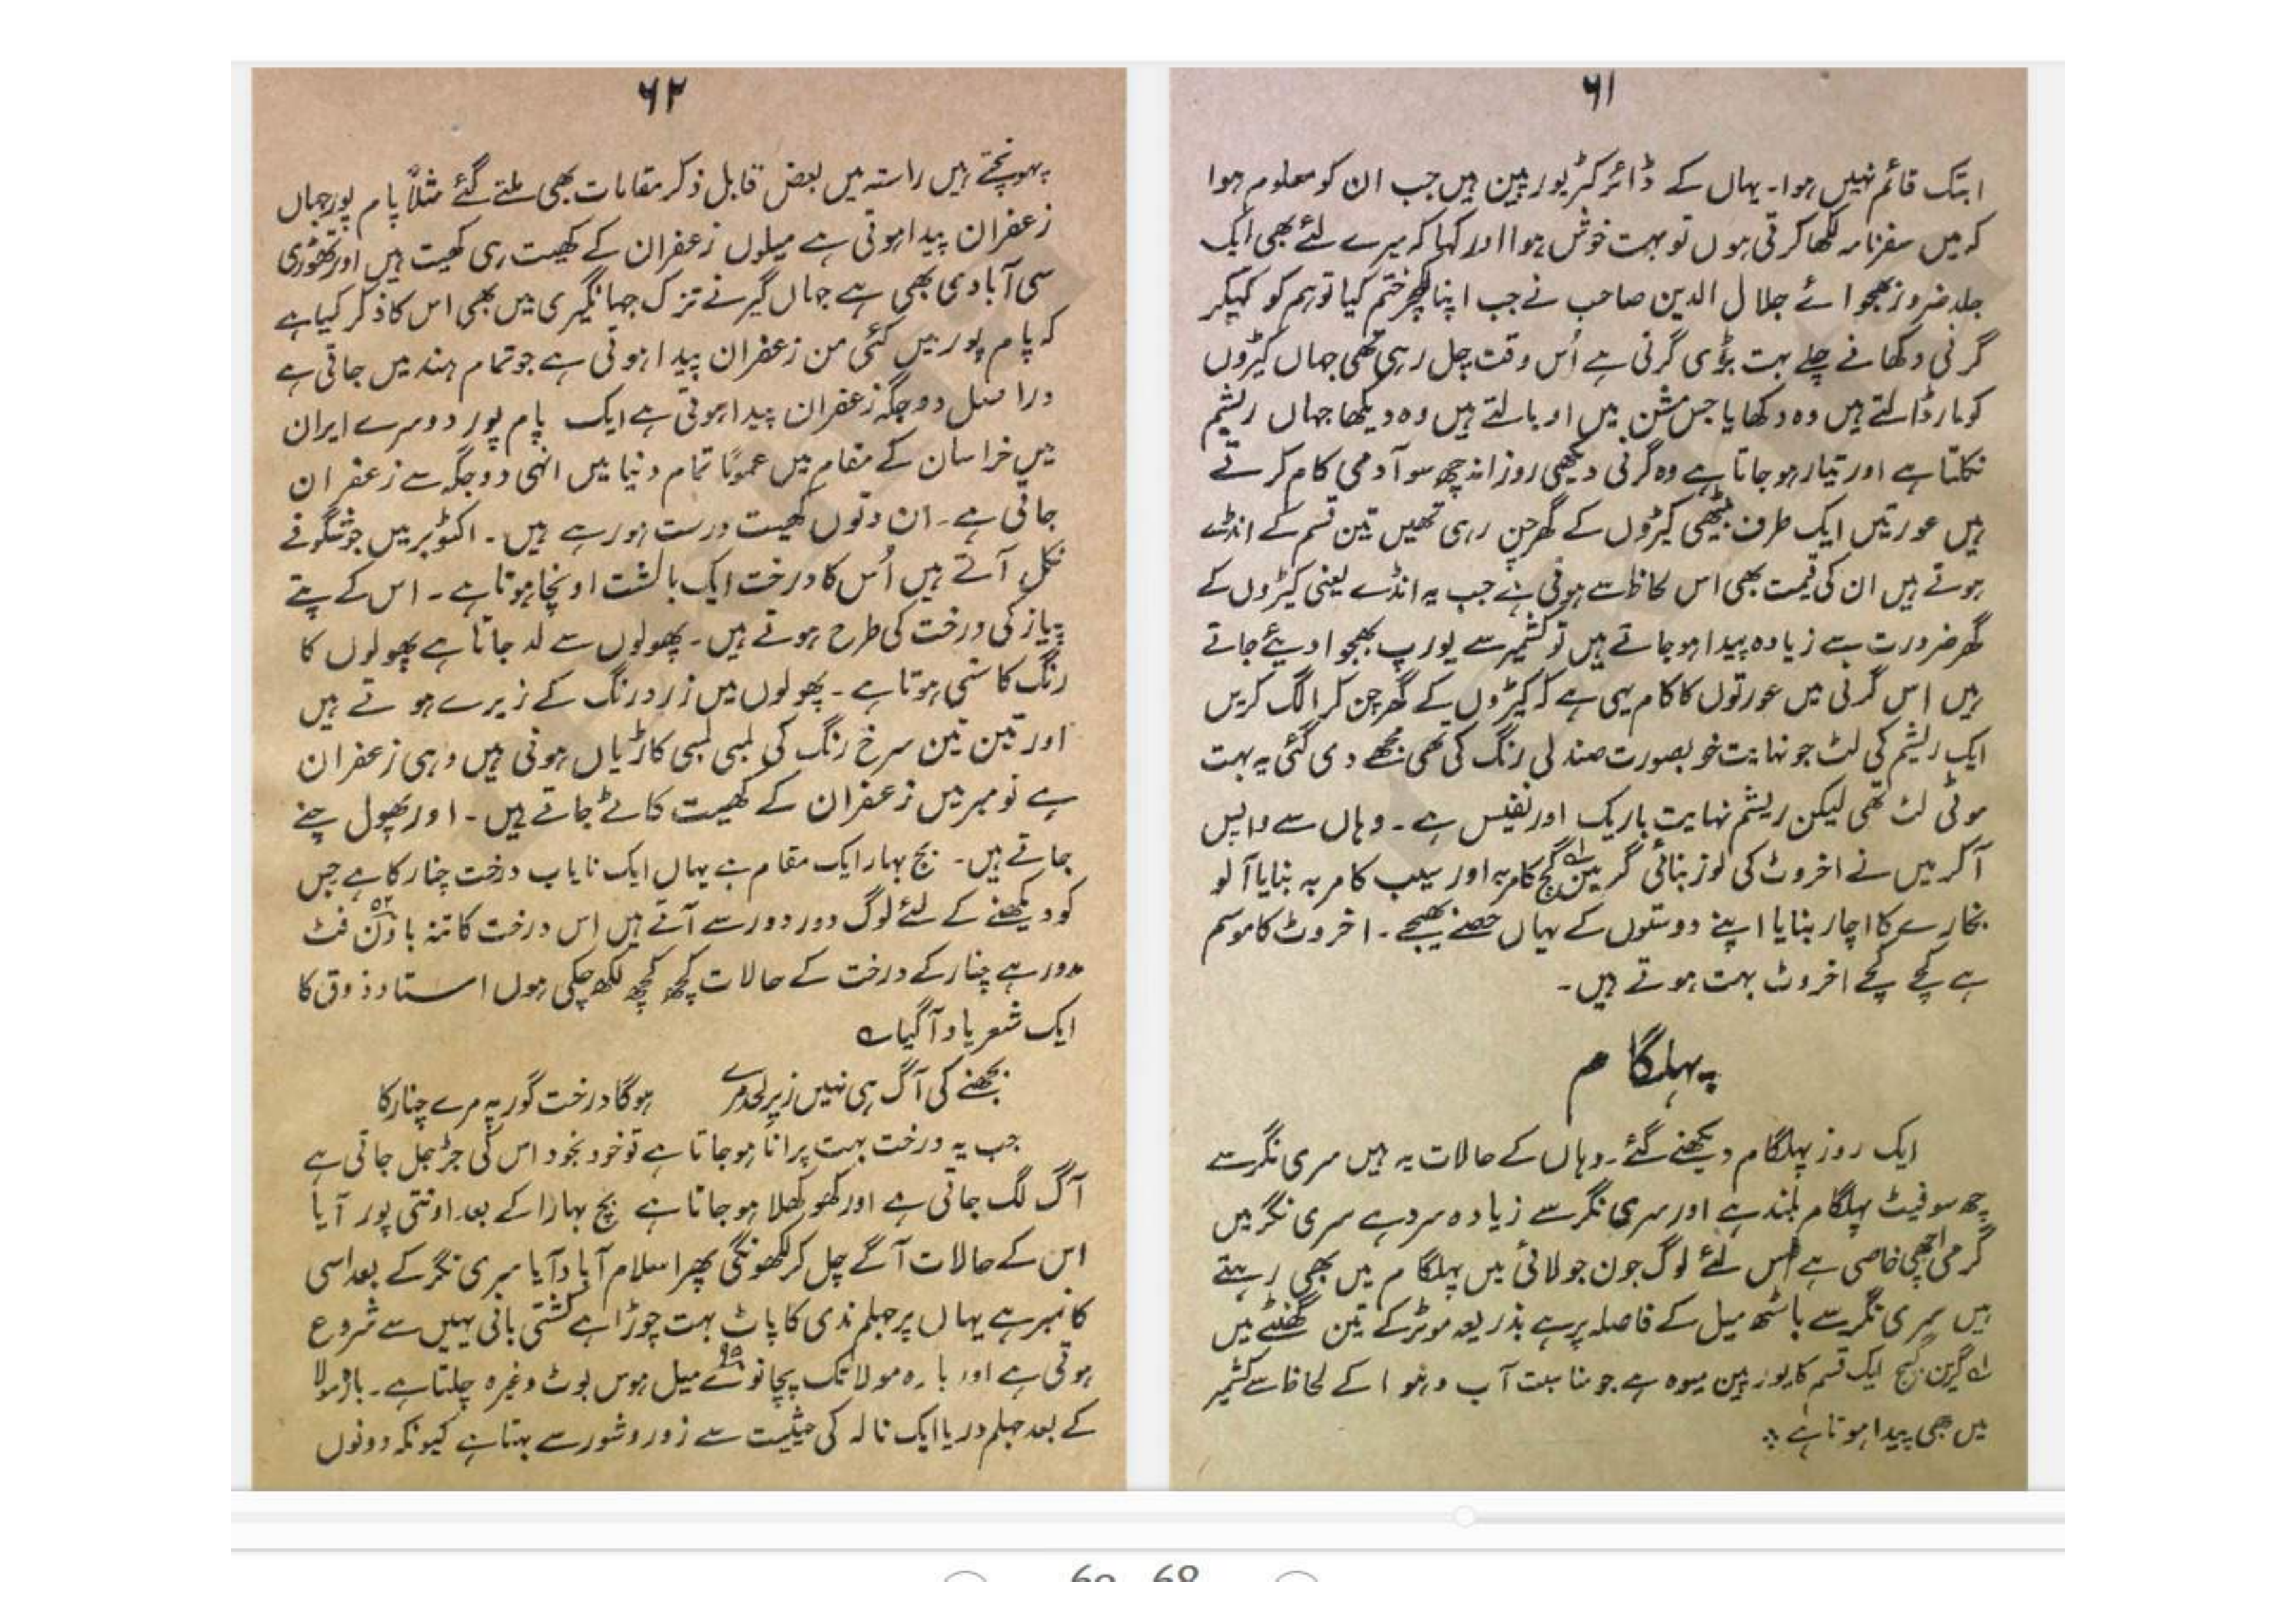 ۶۱
ابتک قائم نہیں ہوا۔ یہاں کے ڈائرکٹر یورپین ہیں جب ان کو معلوم ہوا
کہ میں سفرنامہ لکھا کرتی ہوں تو بہت خوش ہوا اور کہا کہ میرے لئے بھی ایک
جلد ضرور بھجوائے جلال الدین صاحب نے جب اپنا لکچر ختم کیا تو ہم کو کہیکر
گرنی دکھانے چلے بہت بڑی گرنی ہے اُس وقت چل رہی تھی جہاں کیڑوں
کو مار ڈالتے ہیں وہ دکھایا جس مشن میں اوبالتے ہیں وہ دیکھا جہاں ریشم
نکلتا ہے اور تیار ہو جاتا ہے وہ گرنی دیکھی روزانہ چھ سو آدمی کام کرتے
ہیں عورتیں ایک طرف بیٹھی کیڑوں کے گھر چن رہی تھیں تین قسم کے انڈے
ہوتے ہیں ان کی قیمت بھی اس لحاظ سے ہوتی ہے جب یہ انڈے یعنی کیڑوں کے
گھر ضرورت سے زیادہ پیدا ہو جاتے ہیں تو کشمیر سے یورپ بھجوا دیئے جاتے
ہیں اس گرنی میں عورتوں کا کام یہی ہے کہ کیڑوں کے گھر چن کر الگ کریں
ایک ریشم کی لٹ جو نہایت خوبصورت صندلی رنگ کی تھی مجھے دی گئی یہ بہت
موٹی لٹ تھی لیکن ریشم نہایت باریک اور نفیس ہے۔ وہاں سے واپس
آ کر میں نے اخروٹ کی لوز بنائی گرین گیج لہ کا مربہ اور سیب کا مربہ بنایا آلو
بخارے کا اچار بنایا اپنے دوستوں کے یہاں حصے بھیجے۔ اخروٹ کا موسم
ہے کچے کچے اخروٹ بہت ہوتے ہیں۔
پہلگام
ایک روز پہلگام دیکھنے گئے۔ وہاں کے حالات یہ ہیں سری نگر سے
چھ سو فیٹ پہلگام بلند ہے اور سری نگر سے زیادہ سرد ہے سری نگر میں
گرمی اچھی خاصی ہے اس لئے لوگ جون جولائی میں پہلگام میں بھی رہتے
ہیں سری نگر سے باسٹھ میل کے فاصلہ پر ہے بذریعہ موٹر کے تین گھنٹے میں
لہ گرین گیج ایک قسم کا یورپین میوہ ہے جو مناسبت آب و ہوا کے لحاظ سے کشمیر
میں بھی پیدا ہوتا ہے
۶۲
پہونچتے ہیں راستہ میں بعض قابل ذکر مقامات بھی ملتے گئے مثلاً پام پور جہاں
زعفران پیدا ہوتی ہے میلوں زعفران کے کھیت ہی کھیت ہیں اور تھوڑی
سی آبادی بھی ہے جہاں گیر نے تزک جہانگیری میں بھی اس کا ذکر کیا ہے
کہ پام پور میں کئی من زعفران پیدا ہوتی ہے جو تمام ہند میں جاتی ہے
دراصل دو جگہ زعفران پیدا ہوتی ہے ایک پام پور دوسرے ایران
میں خراسان کے مقام میں عموماً تمام دنیا میں انہی دو جگہ سے زعفران
جاتی ہے۔ ان دنوں کھیت درست ہو رہے ہیں۔ اکٹوبر میں جو شگوفے
نکل آتے ہیں اُس کا درخت ایک بالشت اونچا ہوتا ہے۔ اس کے پتے
پیاز کی درخت کی طرح ہوتے ہیں۔ پھولوں سے لد جاتا ہے پھولوں کا
رنگ کاسنی ہوتا ہے۔ پھولوں میں زرد رنگ کے زیرے ہوتے ہیں
اور تین تین سرخ رنگ کی لمبی لمبی کاڑیاں ہوتی ہیں وہی زعفران
ہے نومبر میں زعفران کے کھیت کاٹے جاتے ہیں۔ اور پھول چنے
جاتے ہیں۔ بج بہار ایک مقام ہے یہاں ایک نایاب درخت چنار کا ہے جس
کو دیکھنے کے لئے لوگ دور دور سے آتے ہیں اس درخت کا تنہ باون ۵۲ فٹ
مدور ہے چنار کے درخت کے حالات کچھ کچھ لکھ چکی ہوں استاد ذوق کا
ایک شعر یاد آ گیا ؎
بجھنے کی آگ ہی نہیں زیر لحد مرے ہوگا درخت گور پہ مرے چنار کا
جب یہ درخت بہت پرانا ہو جاتا ہے تو خود بخود اس کی جڑ جل جاتی ہے
آگ لگ جاتی ہے اور کھوکھلا ہو جاتا ہے بج بہارا کے بعد اونتی پور آیا
اس کے حالات آگے چل کر لکھونگی پھر اسلام آباد آیا سری نگر کے بعد اسی
کا نمبر ہے یہاں پر جہلم ندی کا پاٹ بہت چوڑا ہے کشتی بانی یہیں سے شروع
ہوتی ہے اور بارہ مولا تک پچانوے ۹۵ میل ہوس بوٹ وغیرہ چلتا ہے۔ بارہ مولا
کے بعد جہلم دریا ایک نالہ کی حیثیت سے زور و شور سے بہتا ہے کیونکہ دونوں